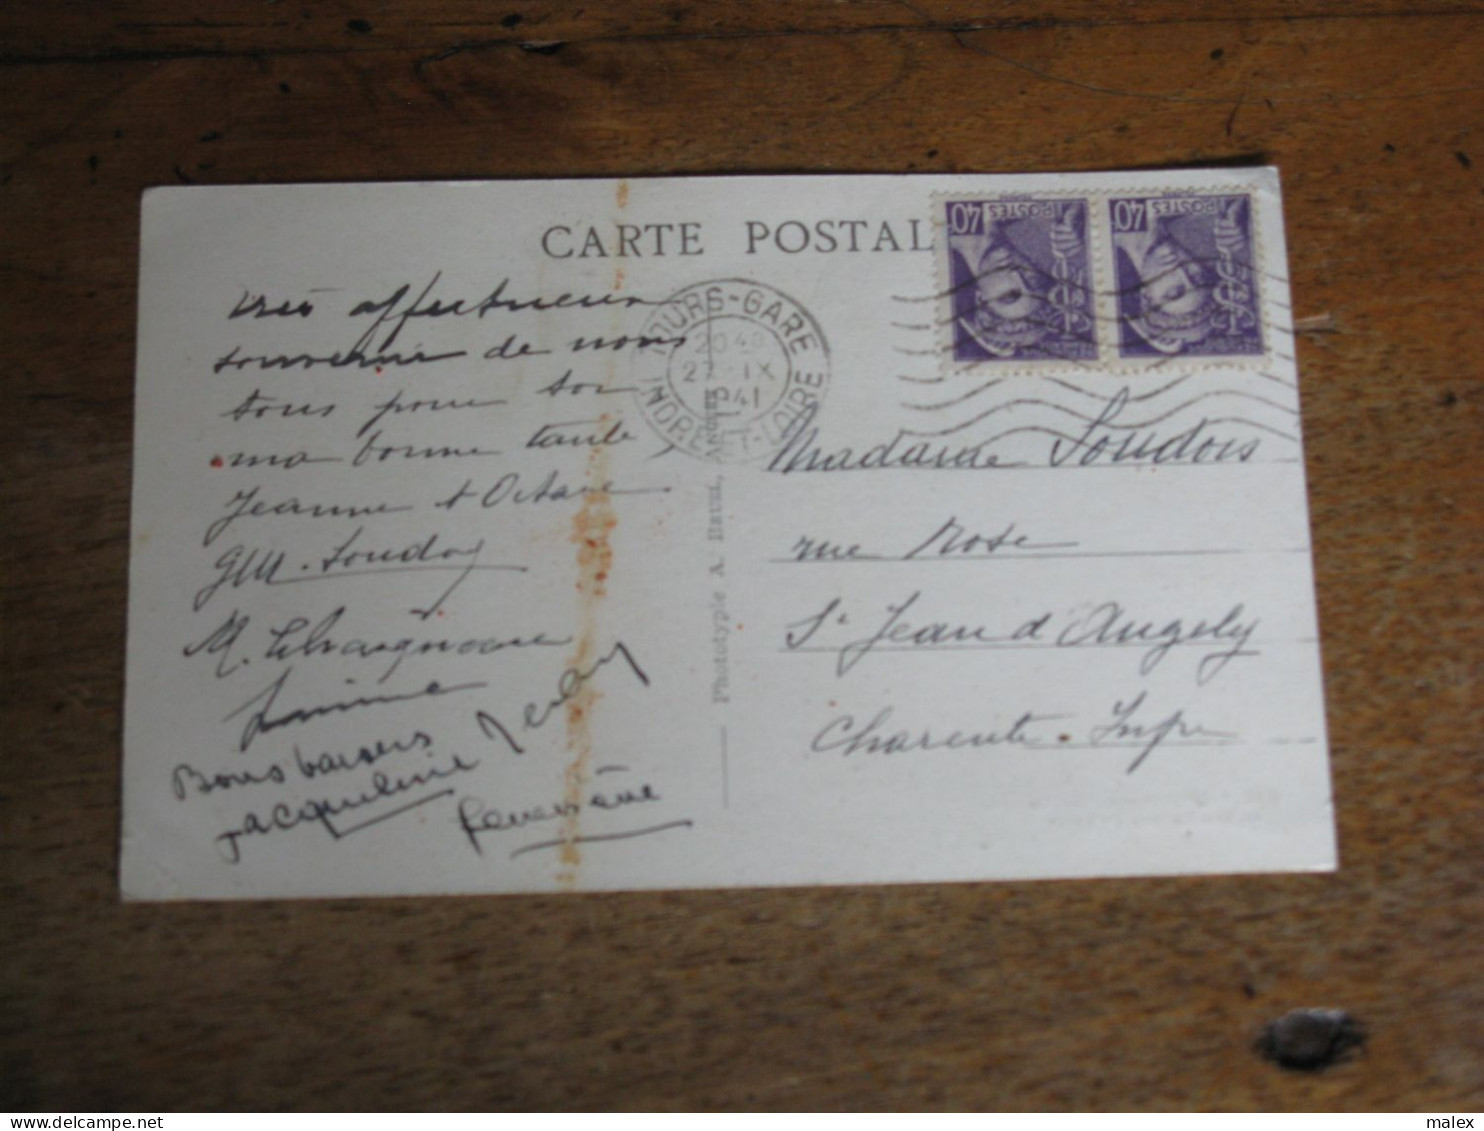 CARTE POSTALE
très affectueux
souvenir de nous
tous pour toi
ma bonne tante
Jeanne et Octave
GM. Soudois
M.
Bons baisers
Jacqueline
TOURS-GARE
20 40
27 IX
1941
INDRE-ET-LOIRE
40
POSTES
40
POSTES
Phototypie A. Bruel, Angers
Madame Soudois
rue Rose
St Jean d'Angely
Charente-Infre
malex